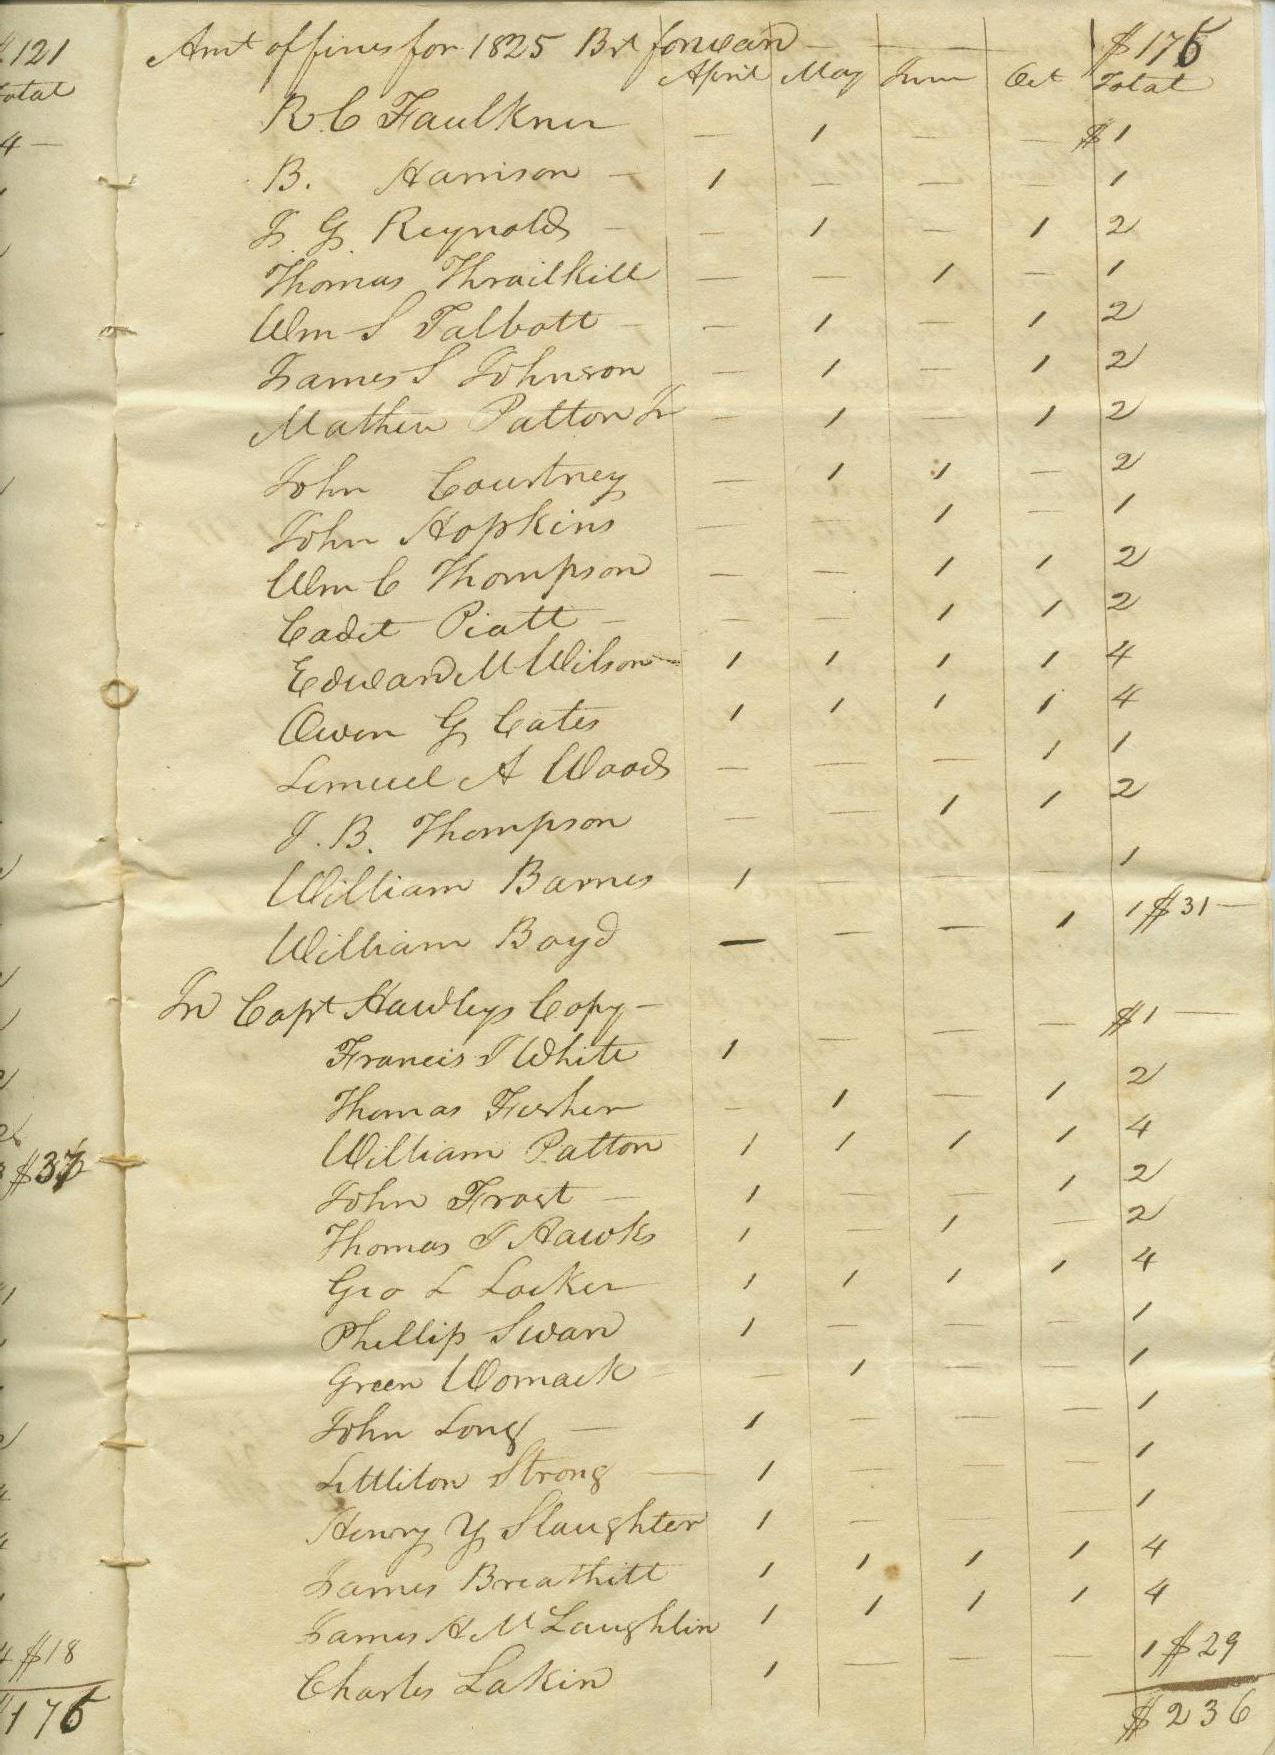 $121
Total
4 —
Amt of fines for 1825 Brt forward — — — $176
April May June Oct Total
R. C Faulkner — 1 — — $1
B. Harrison — 1 — — — 1
J. G. Reynolds — — 1 — 1 2
Thomas Thrailkill — — 1 — 1
Wm S Talbott — — 1 — 1 2
James S Johnson — 1 — 1 2
Mathew Patton Jr — 1 — 1 2
John Courtney — 1 1 — 2
John Hopkins — — 1 — 1
Wm C Thompson — — 1 1 2
Cadet Piatt — — — 1 1 2
Edward M Wilson — 1 1 1 1 4
Owen G Cates 1 1 1 1 4
Lemuel A Woods — — — 1 1
J. B. Thompson — — 1 1 2
William Barnes 1 — — — 1
William Boyd — — — 1 1 $31 —
In Capt Hawleys Copy —
Francis T White 1 — — — $1 —
Thomas Fisher — 1 — 1 2
William Patton 1 1 1 1 4
John Frost — 1 — — 1 2
Thomas T Hawks 1 — 1 — 2
Geo L Locker 1 1 1 1 4
Phillip Swan 1 — — — 1
Green Womack — — 1 — — 1
John Long — 1 — — — 1
Littliton Strong — 1 — — — 1
Henry Y Slaughter 1 — — 1
James Breathitt 1 1 1 1 4
James H McLaughlin 1 1 1 1 4
Charles Lakin 1 — — — 1 $29
$236
$37
4 $18
$176